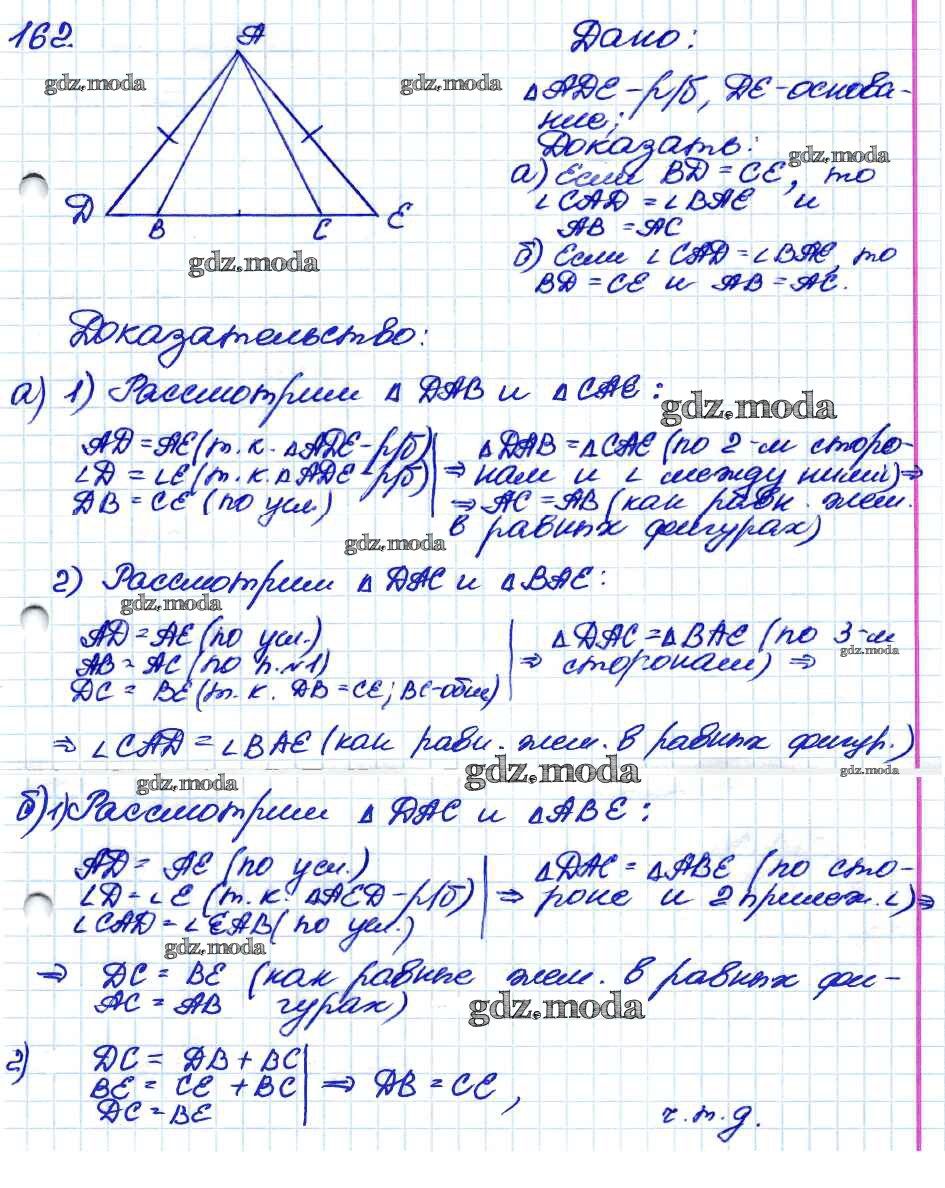 162.
A
D
B
C
E
gdz.moda
gdz.moda
gdz.moda
Дано:
△ADE - р/б, DE - основа-
ние;
Доказать:
gdz.moda
а) Если BD = CE, то
∠CAD = ∠BAE и
AB = AC
б) Если ∠CAD = ∠BAE, то
BD = CE и AB = AC.
Доказательство:
а) 1) Рассмотрим △ DAB и △CAE:
gdz.moda
AD = AE (т.к. △ADE - р/б)
∠D = ∠E (т.к. △ADE - р/б)
DB = CE (по усл.)
△DAB = △CAE (по 2-м сторо-
⇒ нам и ∠ между ними) ⇒
⇒ AC = AB (как равн. элем.
в равных фигурах)
gdz.moda
2) Рассмотрим △ DAC и △BAE:
gdz.moda
AD = AE (по усл.)
AB = AC (по п.№1)
DC = BE (т.к. DB = CE; BC-общ)
△DAC = △BAE (по 3-м
⇒ сторонам) ⇒
gdz.moda
⇒ ∠CAD = ∠BAE (как равн. элем. в равных фигур.)
gdz.moda
gdz.moda
gdz.moda
б) 1) Рассмотрим △ DAC и △ABE:
AD = AE (по усл.)
∠D = ∠E (т.к. △AED - р/б)
∠CAD = ∠EAB (по усл.)
△DAC = △ABE (по сто-
⇒ роне и 2 прилеж. ∠) ⇒
gdz.moda
⇒ DC = BE (как равные элем. в равных фи-
AC = AB гурах)
gdz.moda
2)
DC = DB + BC
BE = CE + BC
DC = BE
⇒ DB = CE,
ч.т.д.